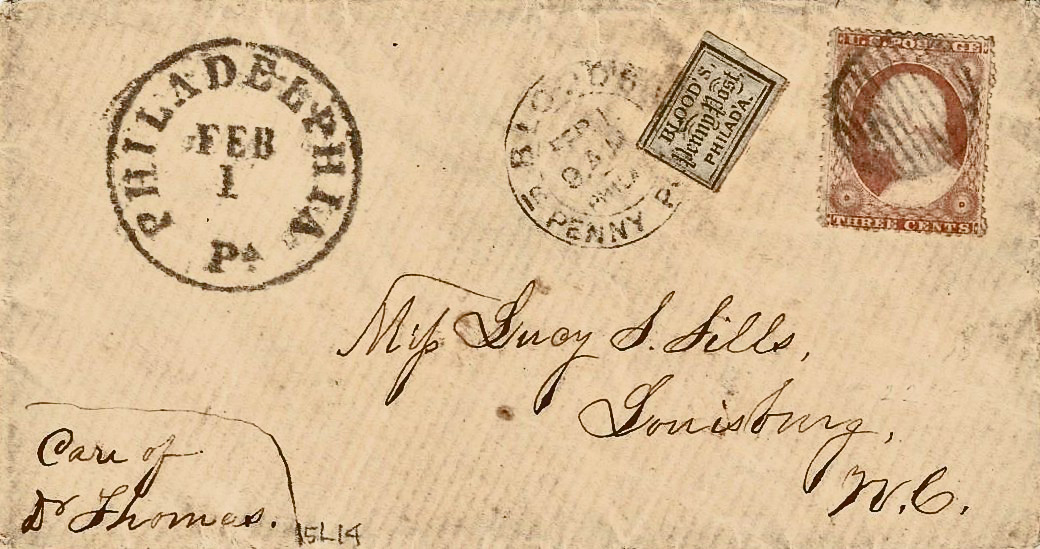 PHILADELPHIA
FEB
1
Pa
BLOOD'S
FEB 1
9 A M
PHILA
PENNY P
BLOOD'S
Penny Post,
PHILAD'A.
U.S. POSTAGE
THREE CENTS
Miss Lucy S. Sills,
Louisburg,
N.C.
Care of
Dr Thomas.
15L14